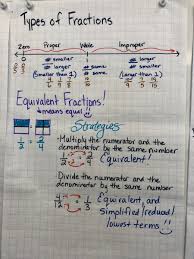 Types of Fractions
Zero Proper Whole Improper
0 # smaller # same # larger
5 # larger # same # smaller
(smaller than 1) (larger than 1)
Equivalent Fractions!
means equal
Strategies
1/2 = 2/4
-Multiply the numerator and the
denominator by the same number
1/2 = 2/4 Equivalent!
Divide the numerator and the
denominator by the same number
4/12 = 1/3 Equivalent, and
simplified/reduced/
lowest terms